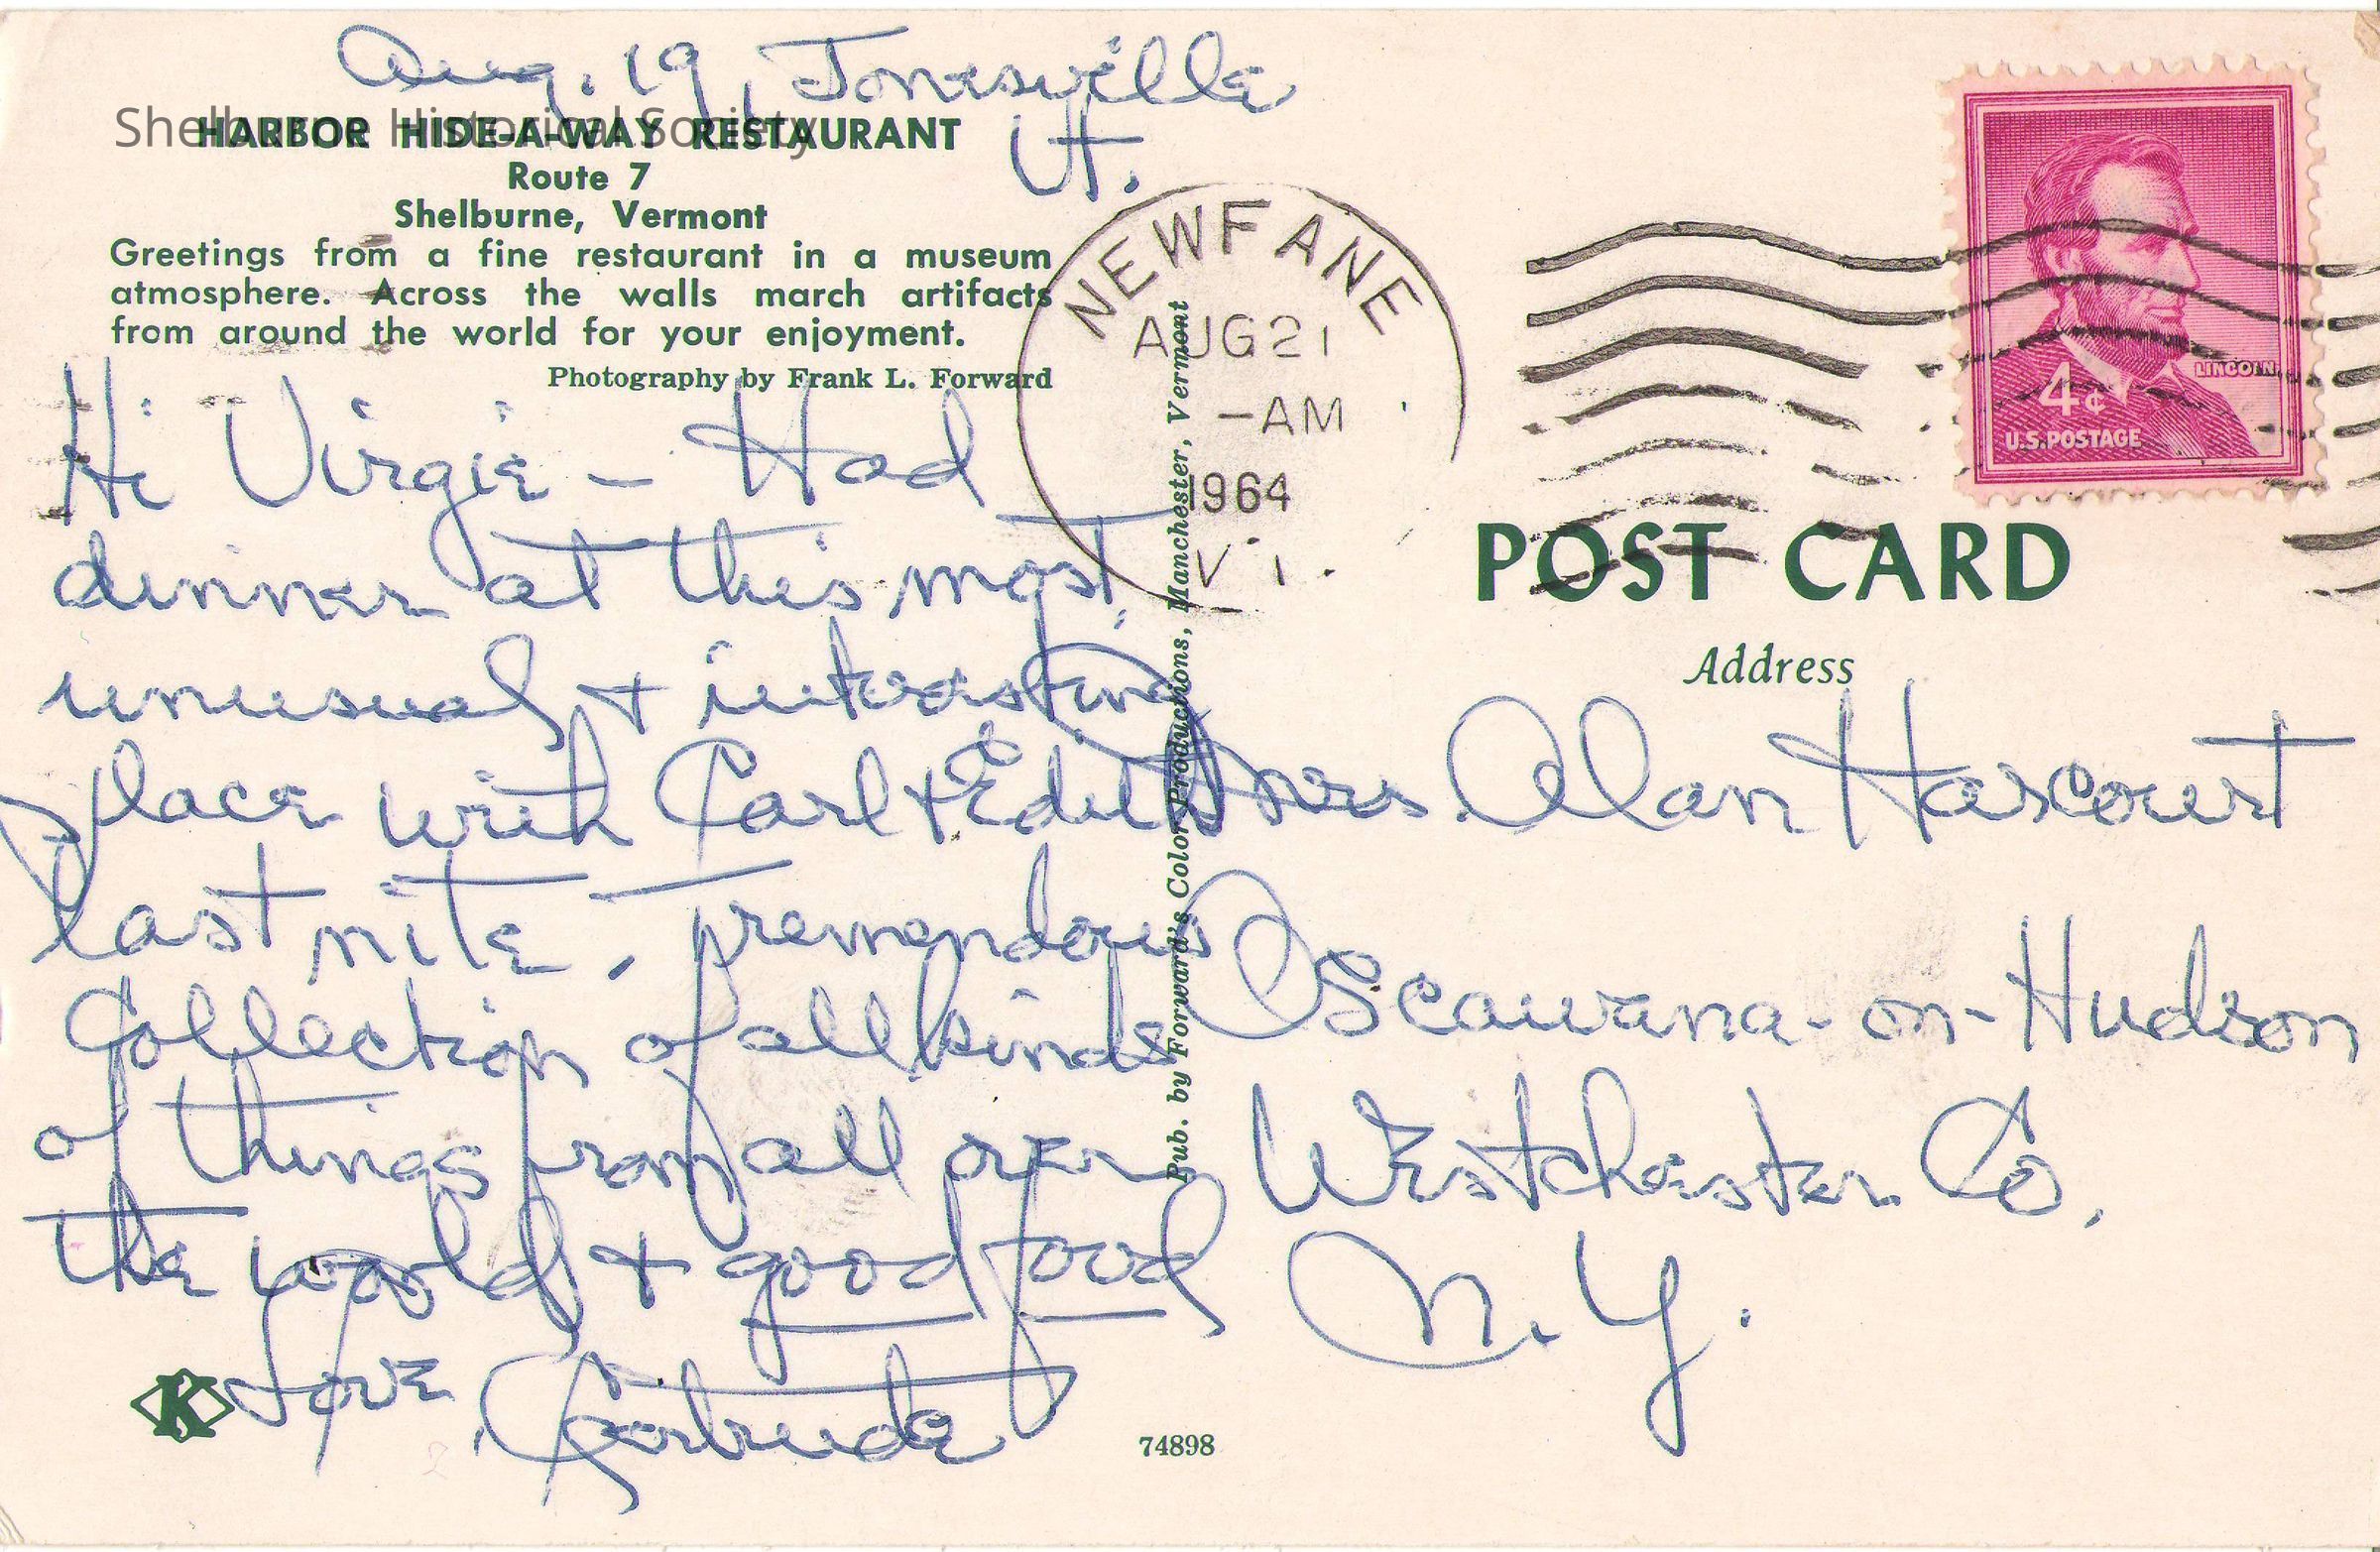 Aug. 19, Jonesville
Vt.
Shelburne Historical Society
HARBOR HIDE-A-WAY RESTAURANT
Route 7
Shelburne, Vermont
Greetings from a fine restaurant in a museum
atmosphere. Across the walls march artifacts
from around the world for your enjoyment.
Photography by Frank L. Forward
Hi Virgie – Had
dinner at this most
unusual & interesting
place with Carl & Edith
last nite. Tremendous
Collection of all kinds
of things from all over
the world & good food
Love,
Gertrude
K
74898
Pub. by Forward's Color Productions, Manchester, Vermont
NEWFANE
AUG 21
–AM
1964
VT.
LINCOLN
4¢
U.S. POSTAGE
POST CARD
Address
Mrs. Alan Harcourt
Oscawana-on-Hudson
Westchester Co.
N.Y.